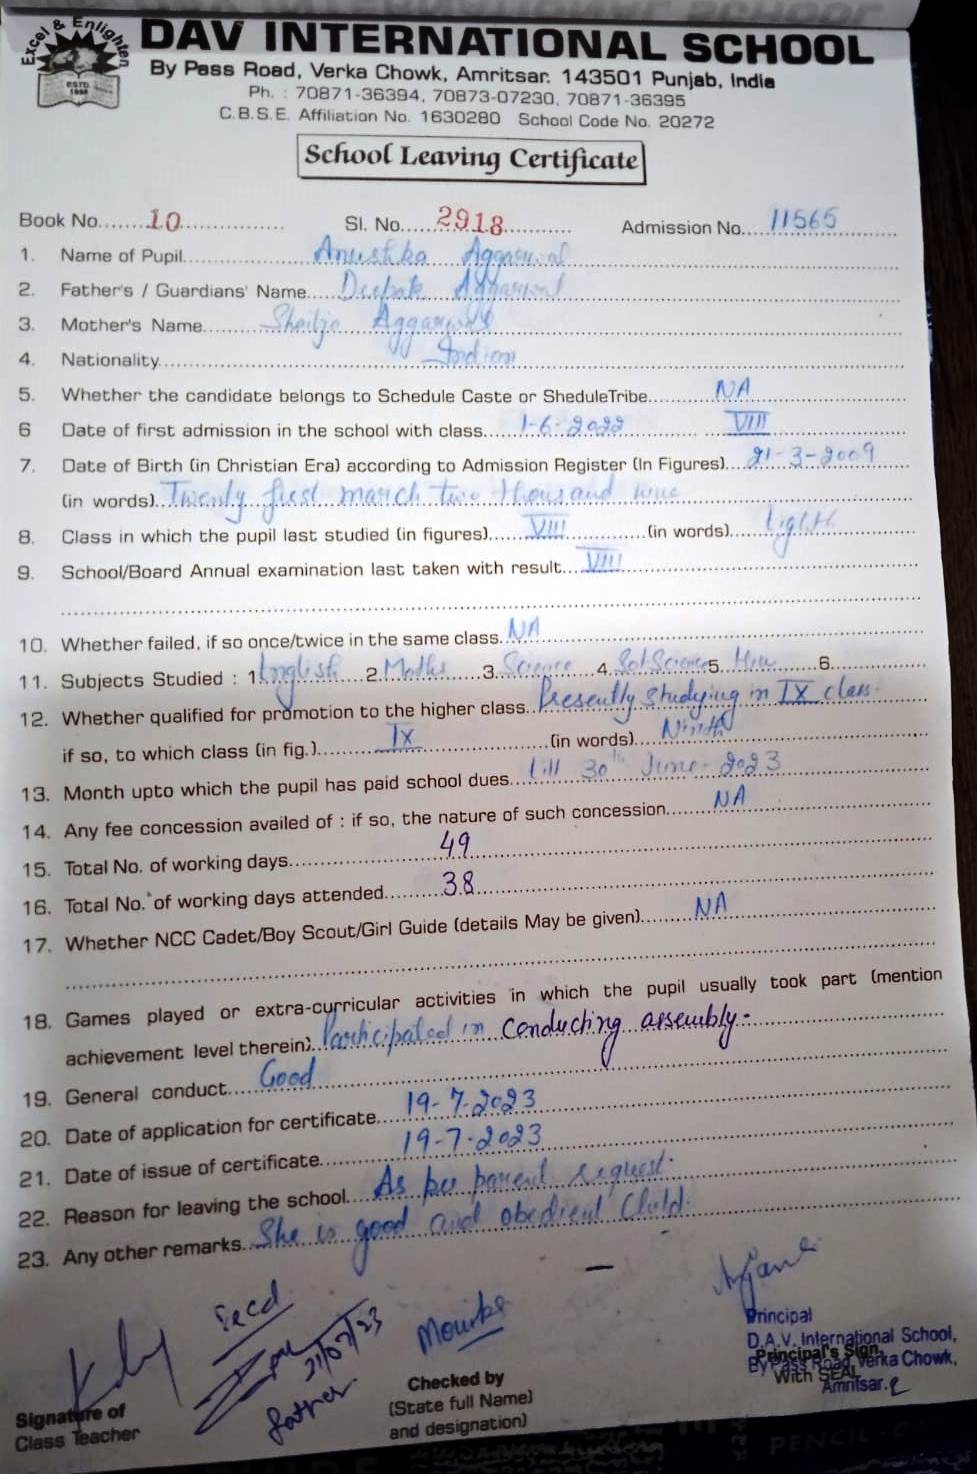 Excel & Enlighten
ESTD.
DAV INTERNATIONAL SCHOOL
By Pass Road, Verka Chowk, Amritsar. 143501 Punjab, India
Ph. : 70871-36394, 70873-07230, 70871-36395
C.B.S.E. Affiliation No. 1630280 School Code No. 20272
School Leaving Certificate
Book No. 10 Sl. No. 2918 Admission No. 11565
1. Name of Pupil Anushka Aggarwal
2. Father's / Guardians' Name Deepak Aggarwal
3. Mother's Name Shailja Aggarwal
4. Nationality Indian
5. Whether the candidate belongs to Schedule Caste or SheduleTribe NA
6 Date of first admission in the school with class 1-6-2022 VIII
7. Date of Birth (in Christian Era) according to Admission Register (In Figures) 21-3-2009
(in words) Twenty first march two thousand nine
8. Class in which the pupil last studied (in figures) VIII (in words) Eight
9. School/Board Annual examination last taken with result VIII
10. Whether failed, if so once/twice in the same class NA
11. Subjects Studied : 1 English 2 Maths 3 Science 4 Sst Science 5 Hin 6
12. Whether qualified for promotion to the higher class Presently studying in IX class
if so, to which class (in fig.) IX (in words) Ninth
13. Month upto which the pupil has paid school dues till 30th June-2023
14. Any fee concession availed of : if so, the nature of such concession NA
15. Total No. of working days 49
16. Total No. of working days attended 38
17. Whether NCC Cadet/Boy Scout/Girl Guide (details May be given) NA
18. Games played or extra-curricular activities in which the pupil usually took part (mention
achievement level therein) Participated in conducting assembly-
19. General conduct Good
20. Date of application for certificate 19-7-2023
21. Date of issue of certificate 19-7-2023
22. Reason for leaving the school As per parent request.
23. Any other remarks She is good and obedient Child.
Recd
21/07/23
Father
Signature of
Class Teacher
Checked by
(State full Name)
and designation)
Principal
D.A.V. International School,
Principal's Sign.
By Pass Road, Verka Chowk,
With SEAL
Amritsar.
PENCIL